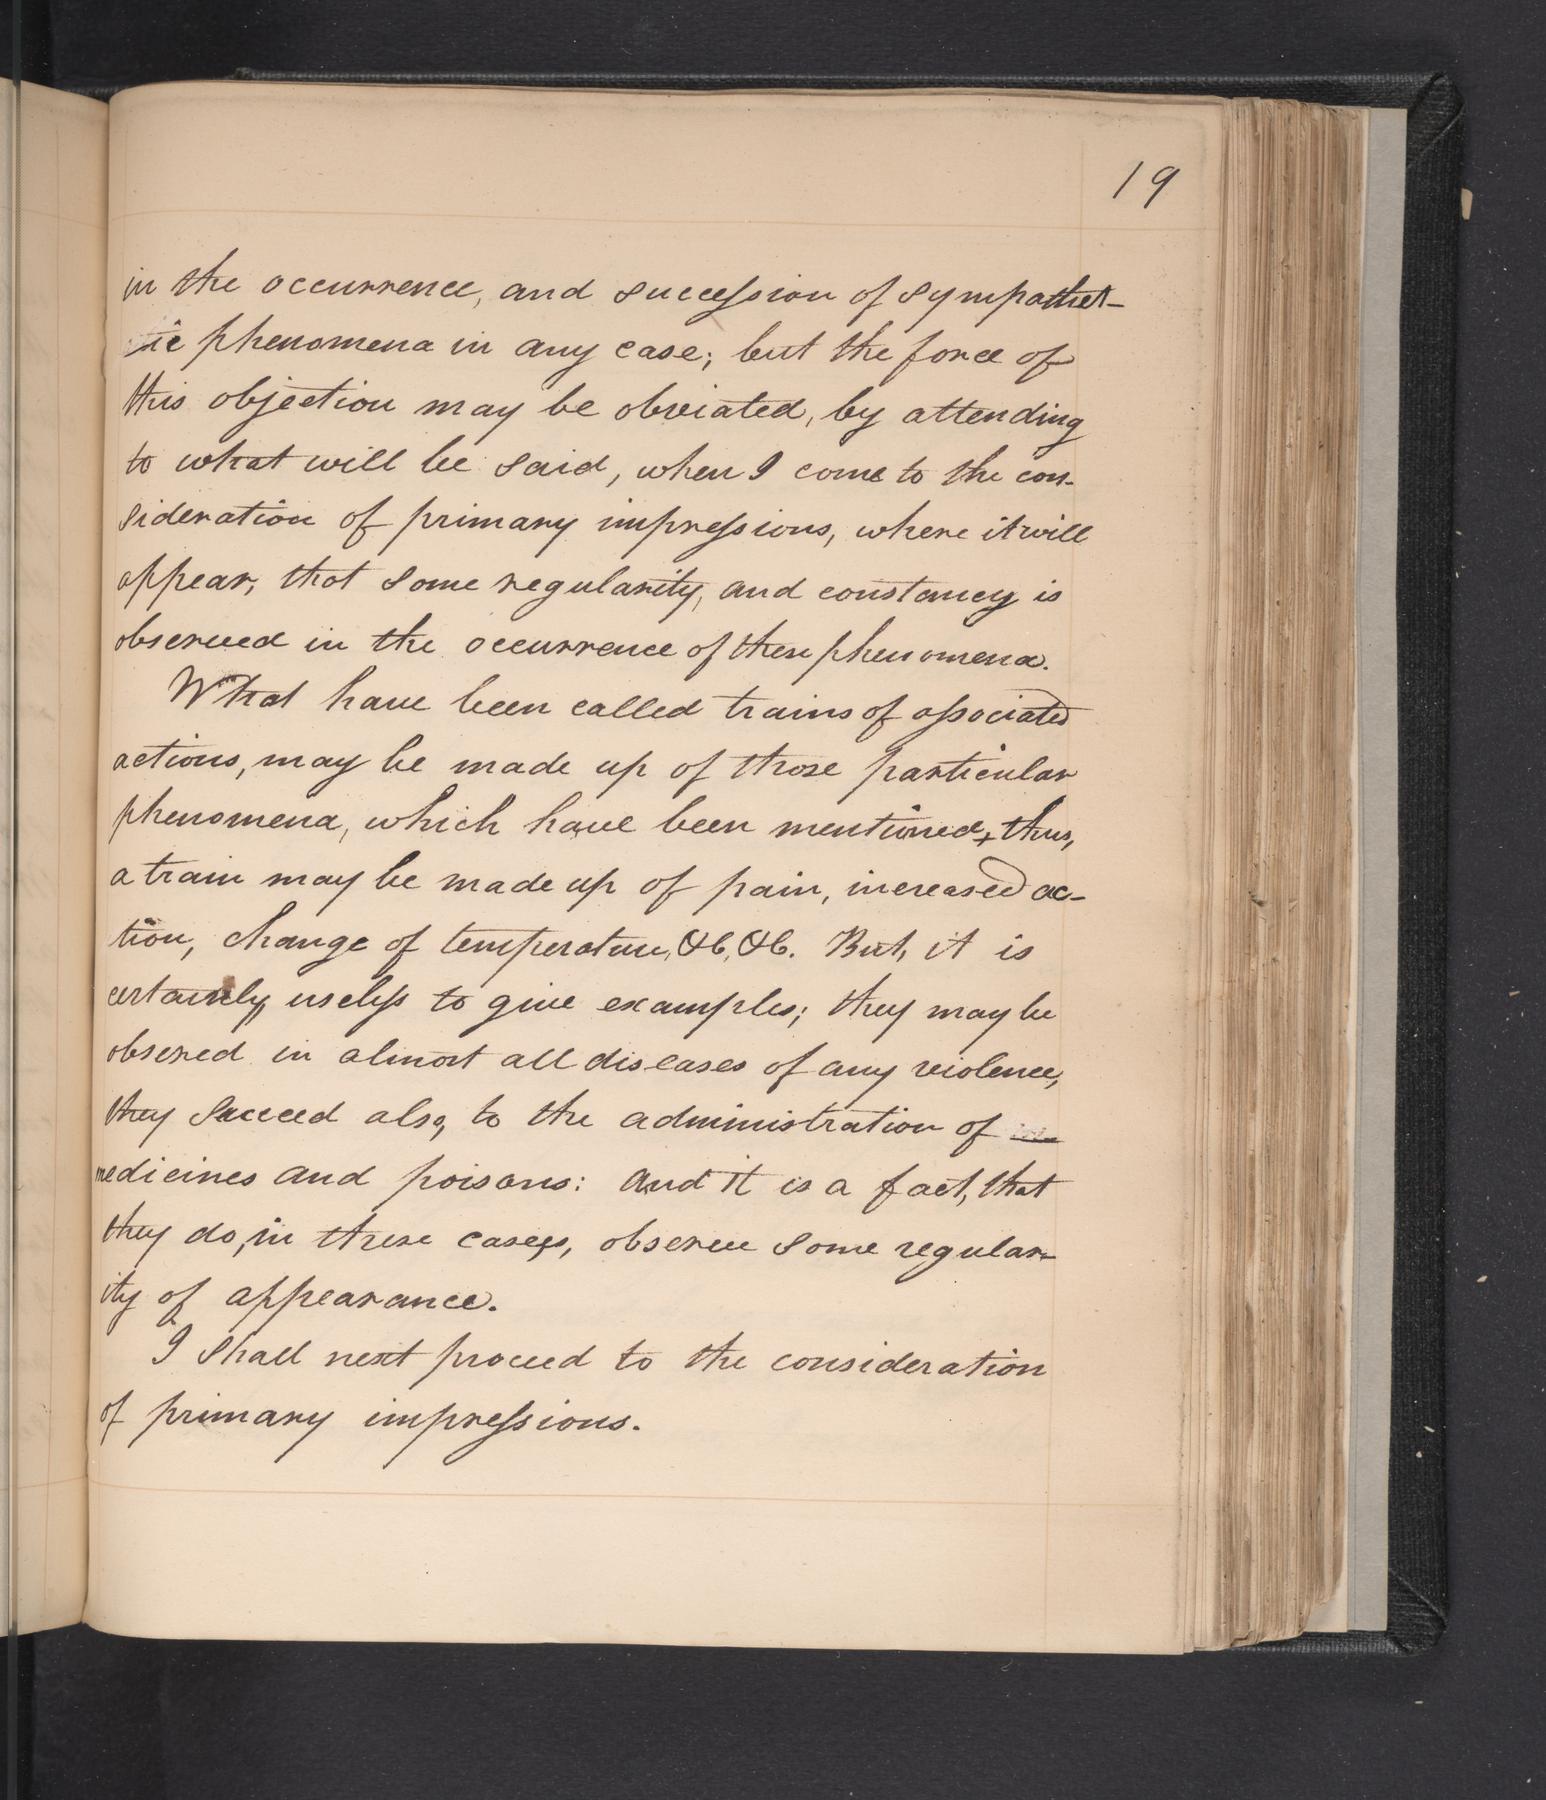 19
in the occurrence, and succession of sympathet-
ic phenomena in any case; but the force of
this objection may be obviated, by attending
to what will be said, when I come to the con-
sideration of primary impressions, where it will
appear, that some regularity, and constancy is
observed in the occurrence of these phenomena.
What have been called trains of associated
actions, may be made up of those particular
phenomena, which have been mentioned, thus,
a train may be made up of pain, increased ac-
tion, change of temperature, &c, &c. But, it is
certainly, useless to give examples; they may be
observed in almost all diseases of any violence,
they succeed also, to the administration of
medicines and poisons: and it is a fact, that
they do, in these cases, observe some regular-
ity of appearance.
I shall next proceed to the consideration
of primary impressions.